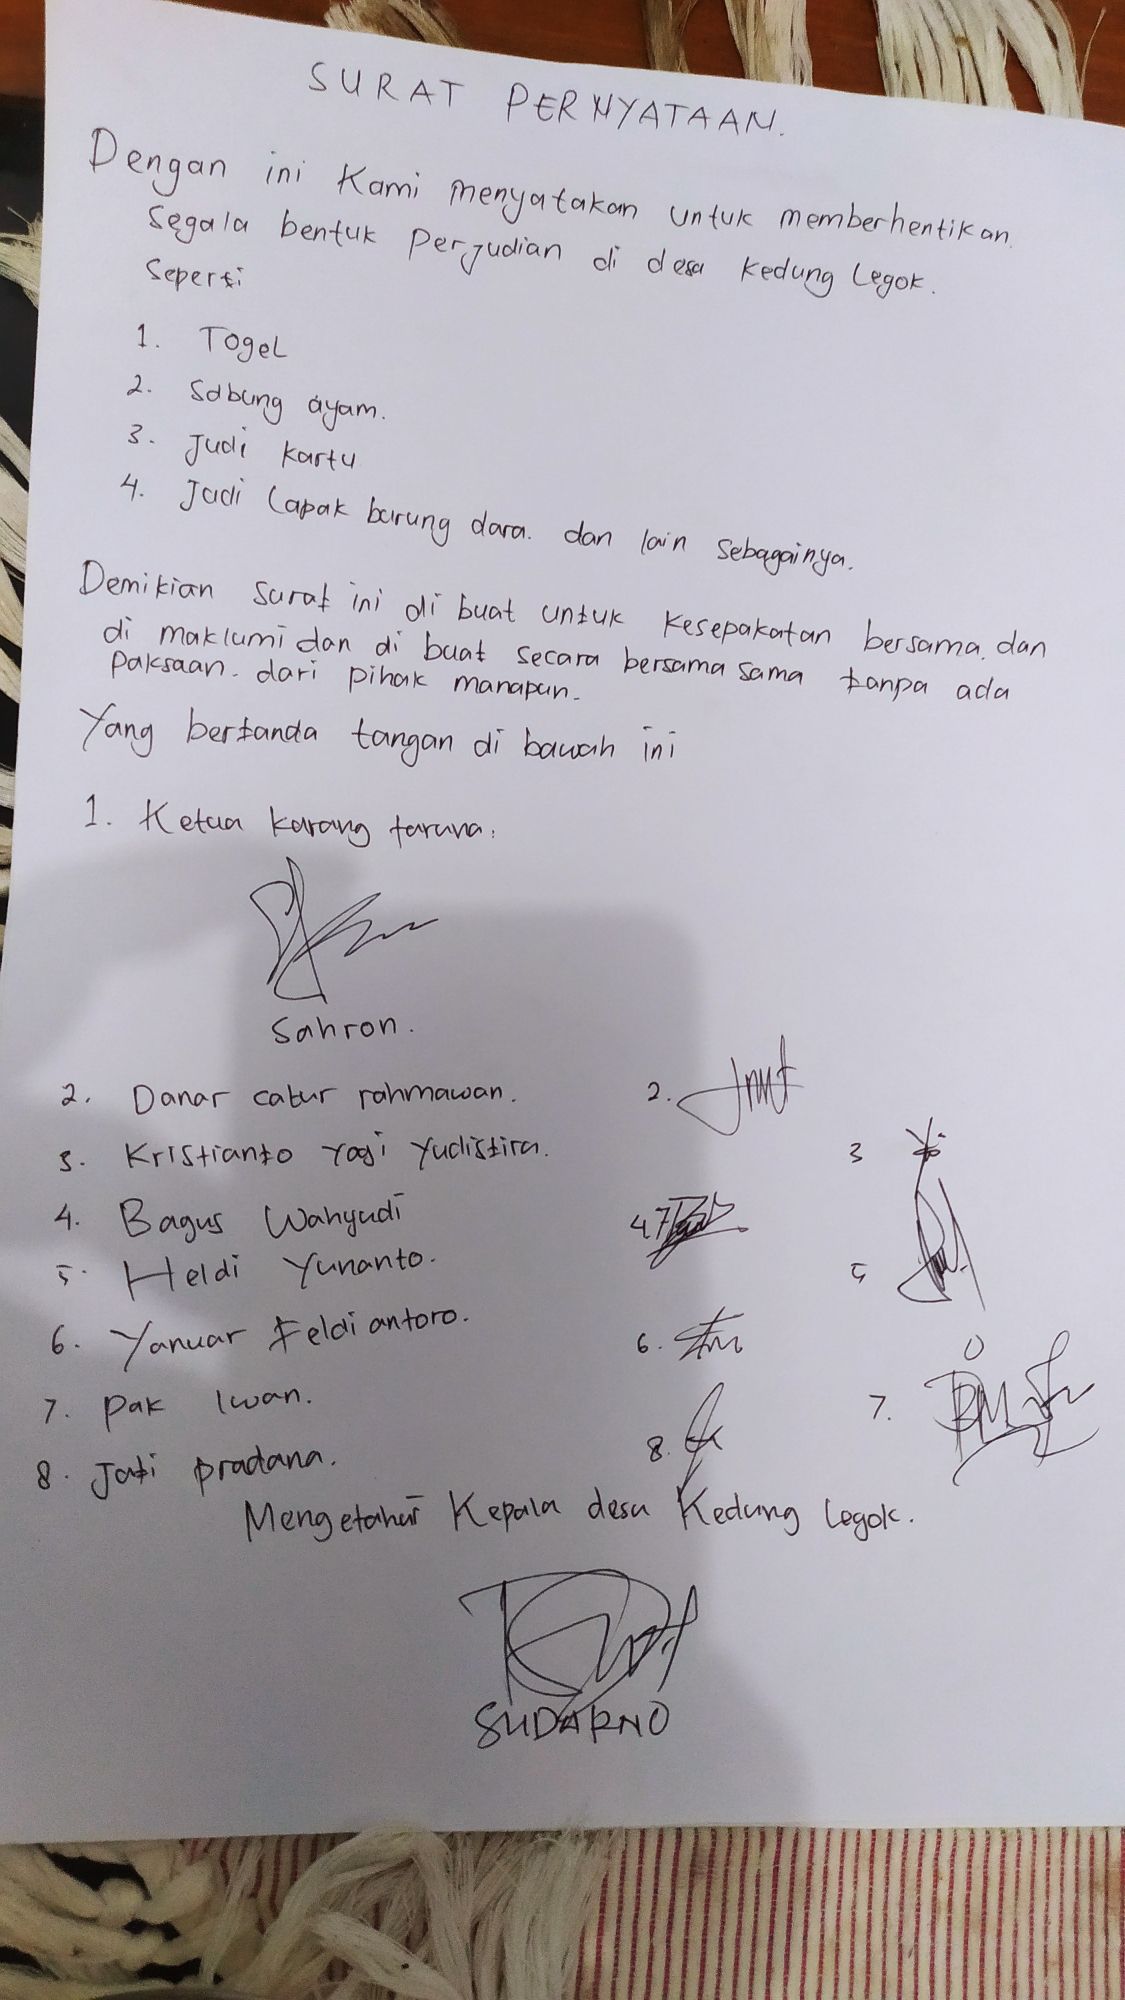 SURAT PERNYATAAN.
Dengan ini Kami menyatakan untuk memberhentikan
segala bentuk Perjudian di desa Kedung Legok.
Seperti
1. Togel
2. Sabung ayam.
3. Judi Kartu
4. Judi Lapak burung dara. dan lain sebagainya.
Demikian surat ini di buat untuk Kesepakatan bersama. dan
di maklumi dan di buat secara bersama sama tanpa ada
Paksaan. dari pihak manapun.
Yang bertanda tangan di bawah ini
1. Ketua Karang taruna.
Sahron.
2. Danar catur rahmawan. 2.
3. Kristianto Yogi Yudistira. 3
4. Bagus Wahyudi 4
5. Heldi Yunanto. 5
6. Yanuar Feldi antoro. 6.
7. Pak Iwan. 7.
8. Jati pradana. 8.
Mengetahui Kepala desa Kedung Legok.
SUDARNO